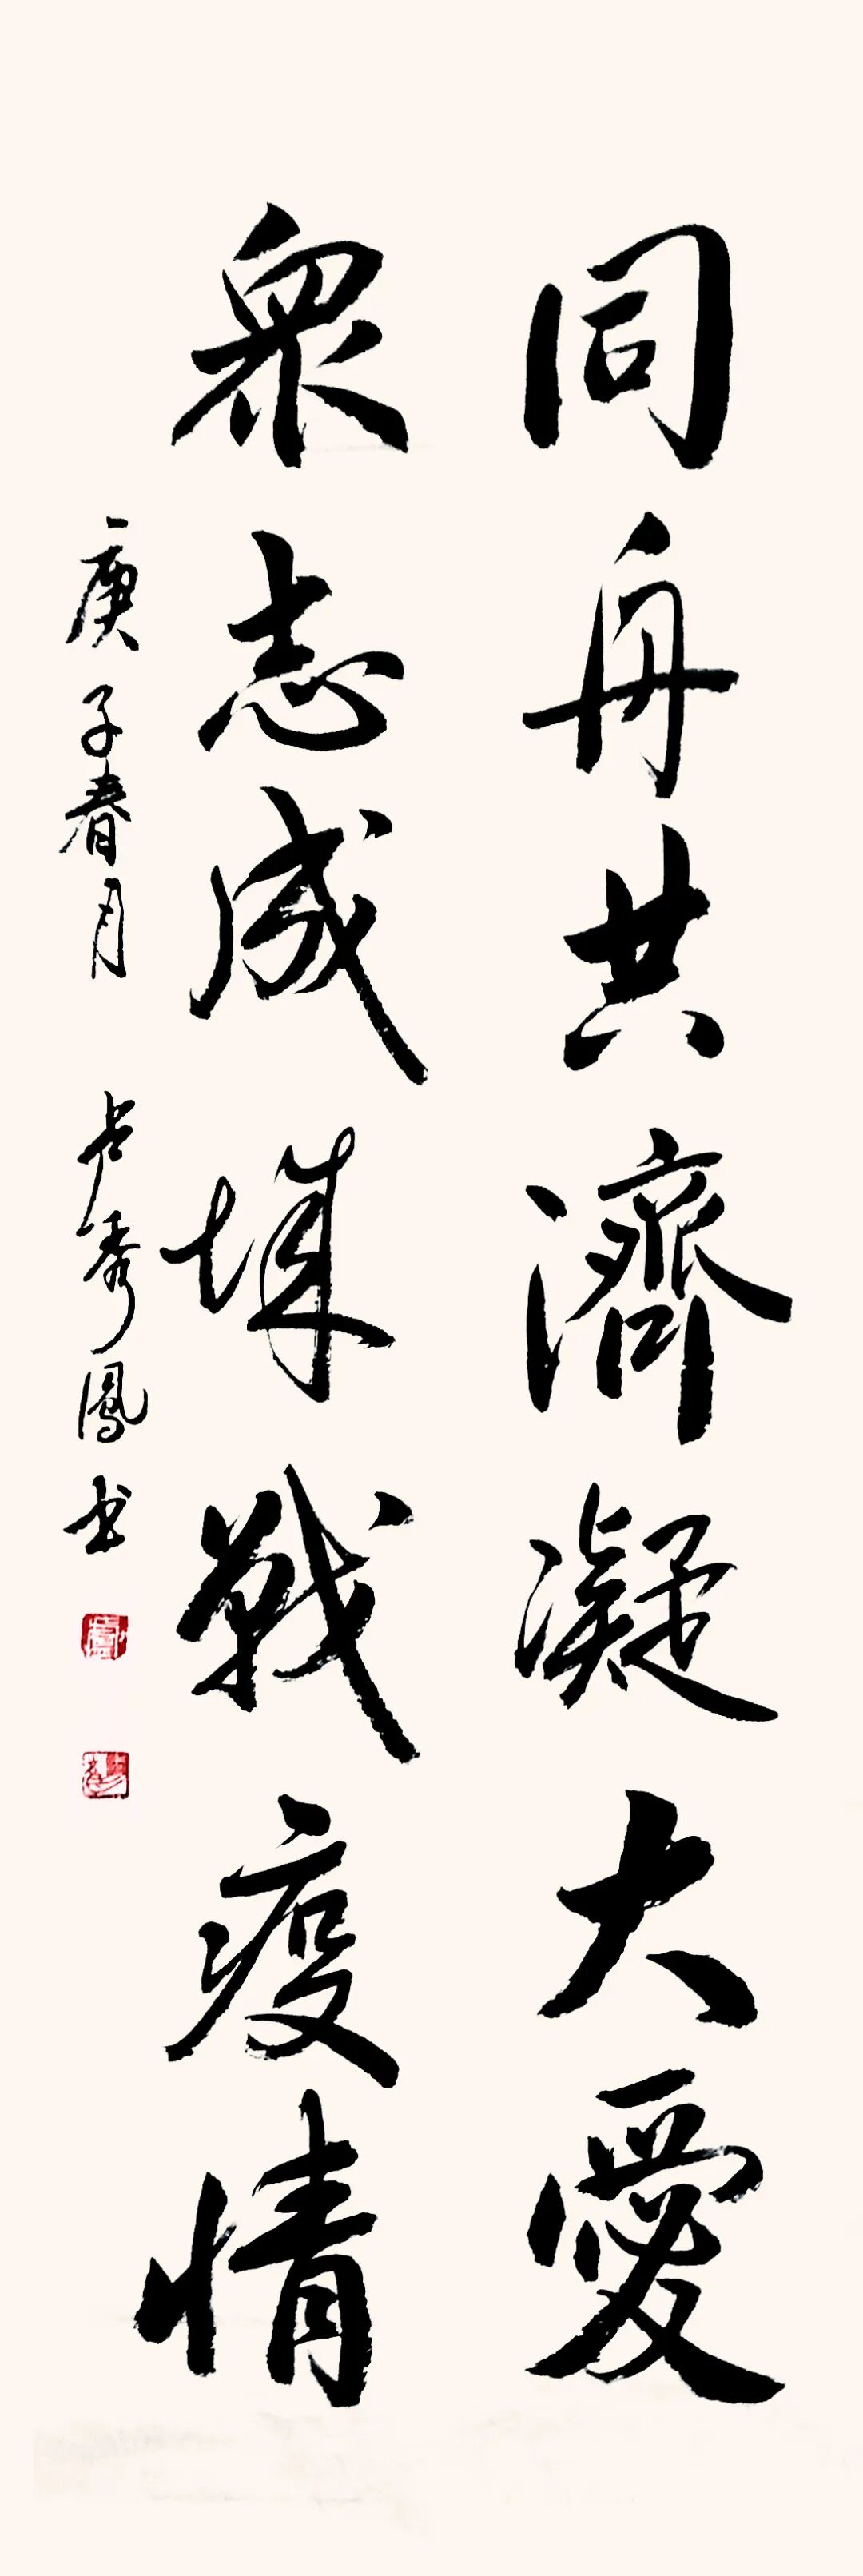 同舟共濟凝大愛
衆志成城戰疫情
庚子春月 卢秀鳳书